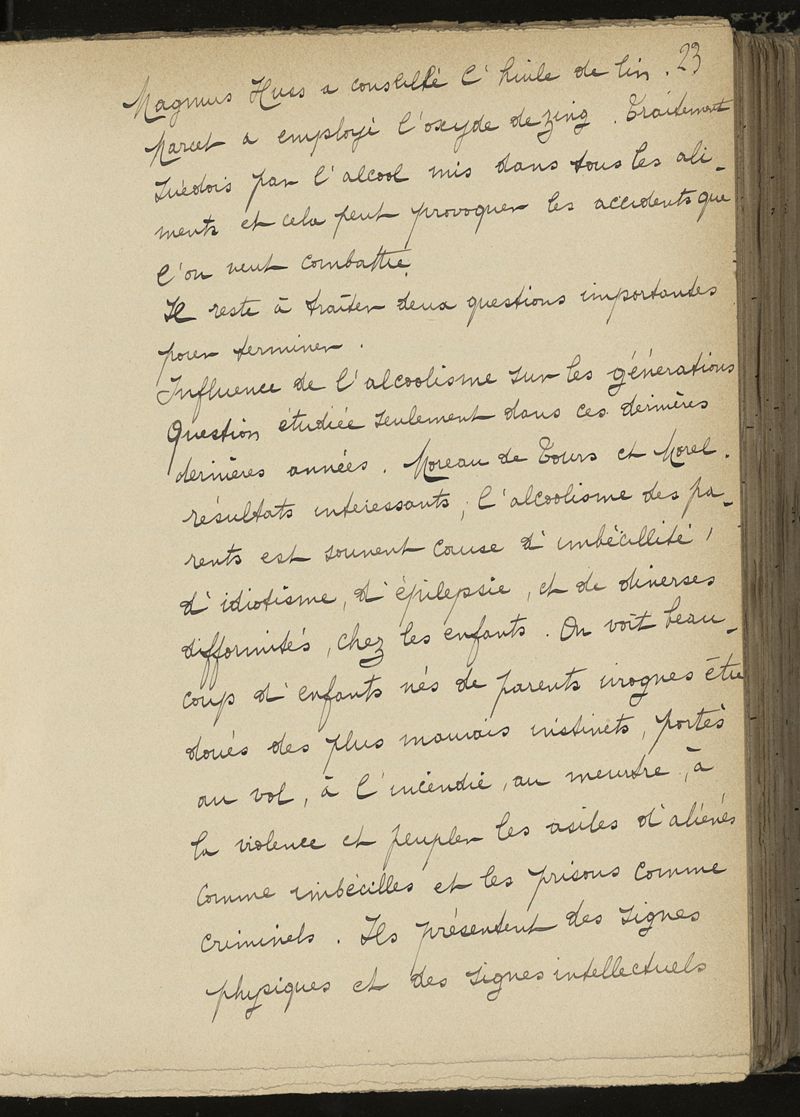 23
Magnus Huss a conseillé l'huile de lin.
Marcet a employé l'oxyde de zing. Traitement
suédois par l'alcool mis dans tous les ali-
ments et cela peut provoquer les accidents que
l'on veut combattre.
Il reste à traiter deux questions importantes
pour terminer.
Influence de l'alcoolisme sur les générations
Question étudiée seulement dans ces dernières
dernières années. Moreau de Tours et Morel.
résultats interessants; l'alcoolisme des pa-
rents est souvent cause d'imbécillité,
d'idiotisme, d'épilepsie, et de diverses
difformités, chez les enfants. On voit beau-
coup d'enfants nés de parents ivrognes être
doués des plus mauvais instincts, portés
au vol, à l'incendie, au meurtre, à
la violence et peupler les asiles d'aliénés
comme imbécilles et les prisons comme
criminels. Ils présentent des signes
physiques et des signes intellectuels